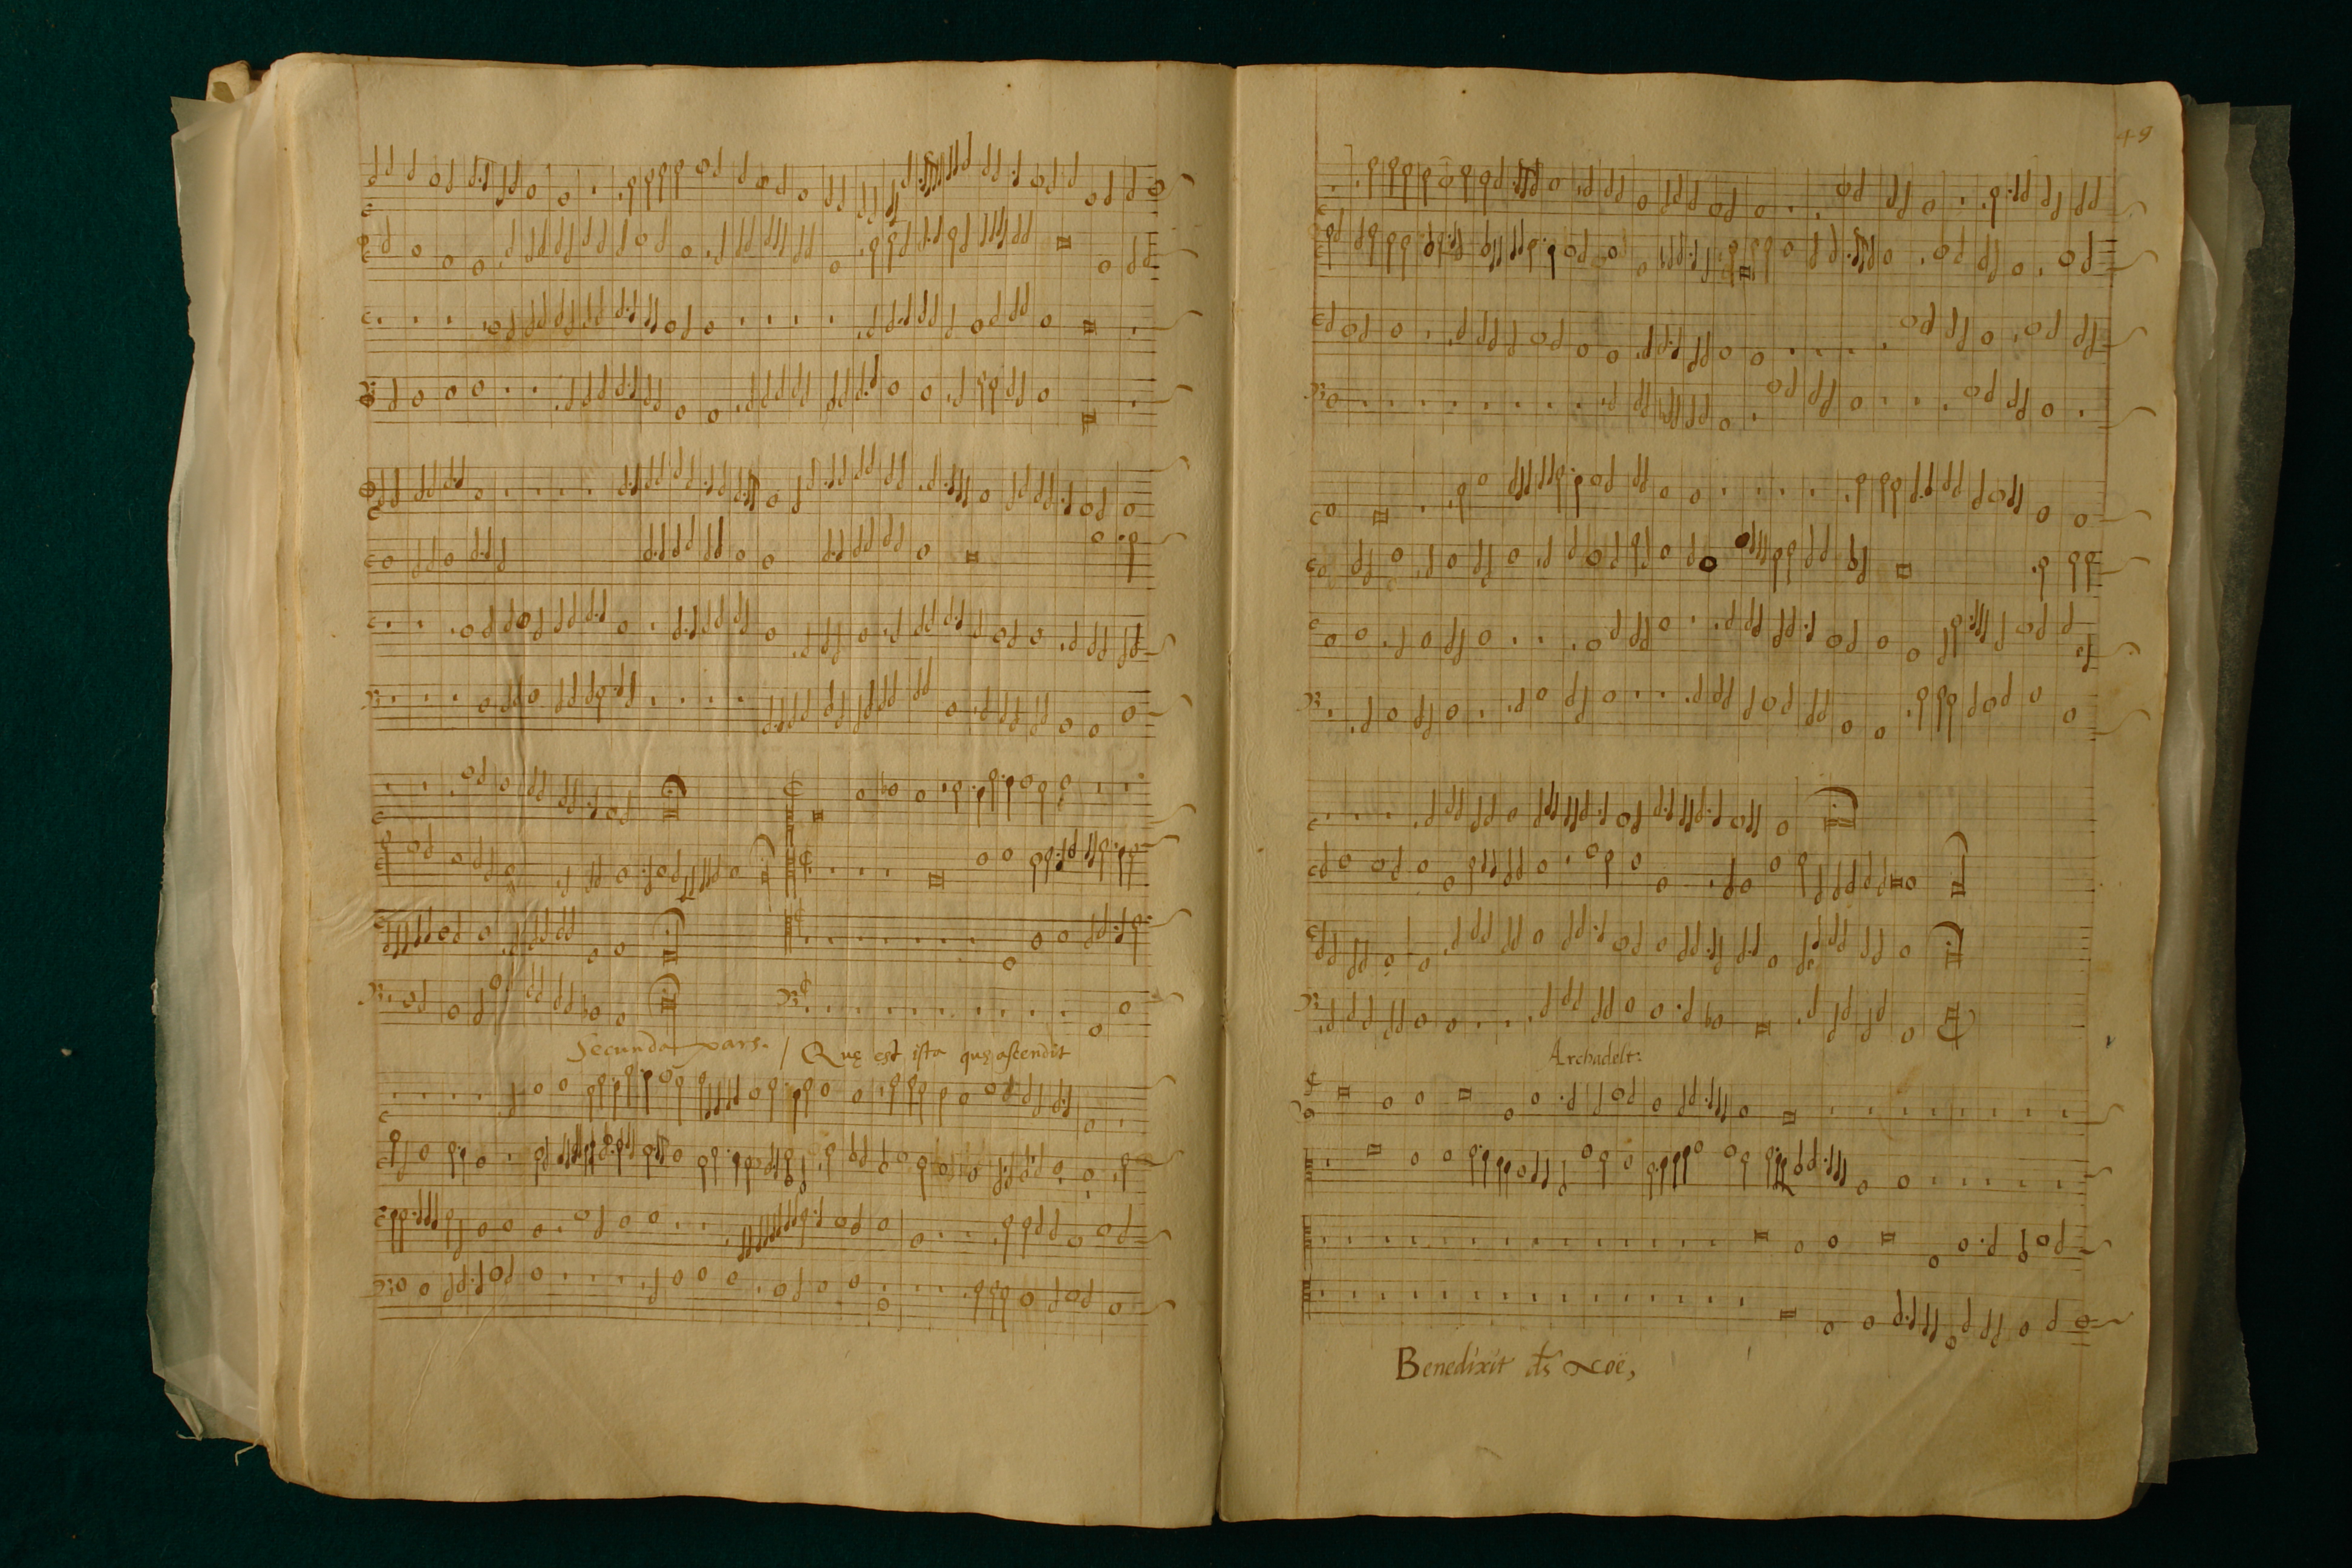 Secunda pars. / Quę est ista quę ascendit
49
Archadelt:
Benedixit ds Noë,